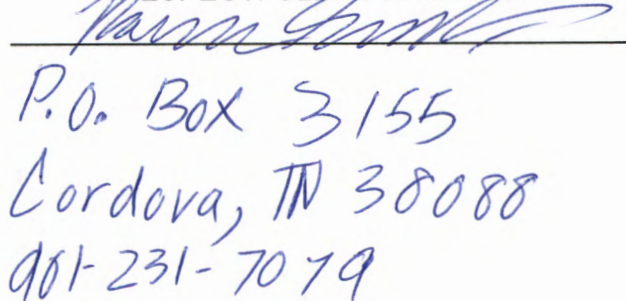 P.O. Box 3155
Cordova, TN 38088
901-231-7079